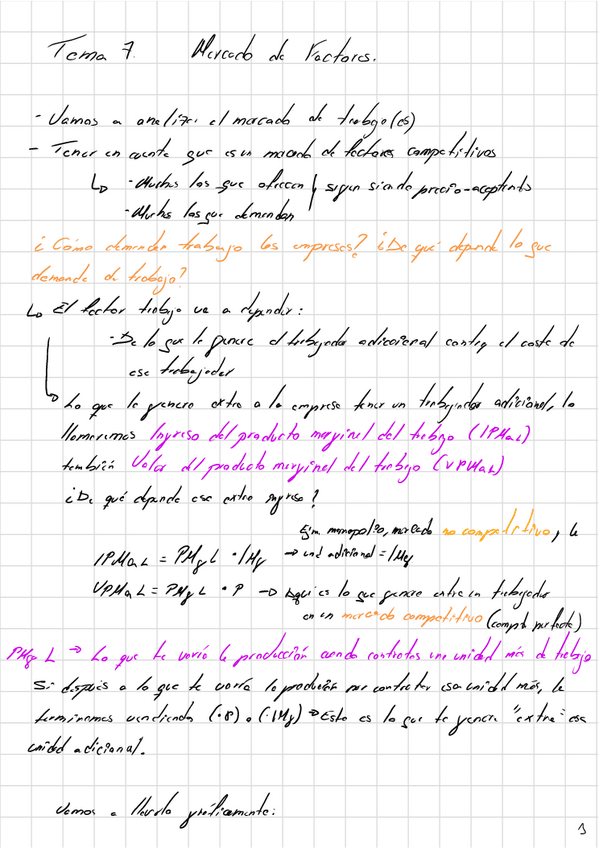 Tema 7. Mercado de Factores.
- Vamos a analizar el mercado de trabajo (és)
- Tener en cuenta que es un mercado de factores competitivos
↳ - Muchos los que ofrecen } siguen siendo precio-aceptante
- Muchos los que demandan
¿Cómo demandan trabajo las empresas? ¿De qué depende lo que
demanda de trabajo?
↳ El factor trabajo va a depender:
- De lo que le genere el trabajador adicional contra el coste de
ese trabajador
↳ Lo que le genera extra a la empresa tener un trabajador adicional, lo
llamaremos Ingreso del producto marginal del trabajo (IPMaL)
también Valor del producto marginal del trabajo (VPMaL)
¿De qué depende ese extra ingreso?
monopolio, mercado no competitivo, la
IPMaL = PMgL · IMg → und adicional = IMg
VPMaL = PMgL · P → Aquí es lo que genera extra un trabajador
en un mercado competitivo (comp. perfecta)
PMgL → Lo que te varía la producción cuando contratas una unidad más de trabajo
Si después a lo que te varía la producción por contratar esa unidad más, la
terminamos vendiendo (·P) o (·IMg) → Esto es lo que te genera "extra" esa
unidad adicional.
Vamos a llevarlo gráficamente:
1